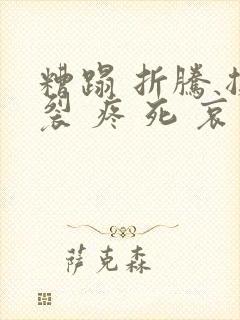 糟蹋 折騰
裂 疼 死 哀
萨克森